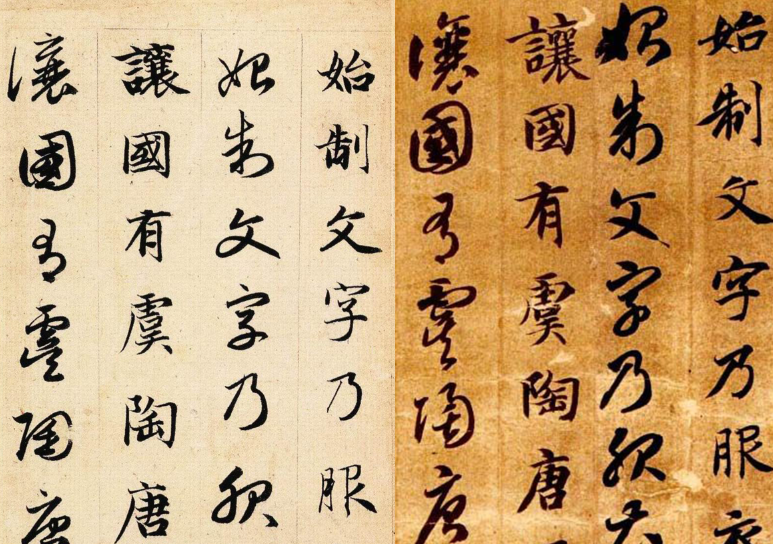 始制文字乃服
始制文字乃服
讓國有虞陶唐
讓國有虞陶唐
始制文字乃服衣
始制文字乃服衣
讓國有虞陶唐
讓國有虞陶唐